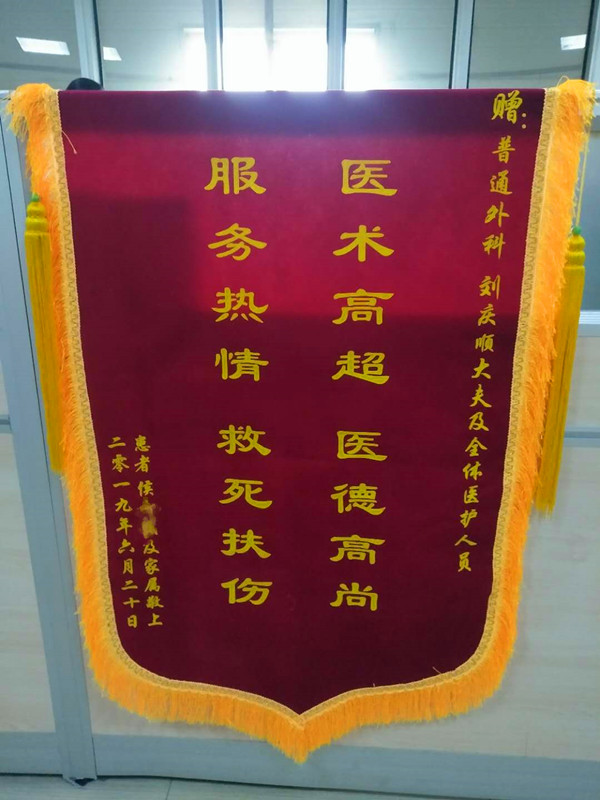 赠:普通外科 刘庆顺大夫及全体医护人员
医术高超 医德高尚
服务热情 救死扶伤
患者侯 及家属敬上
二零一九年六月二十日